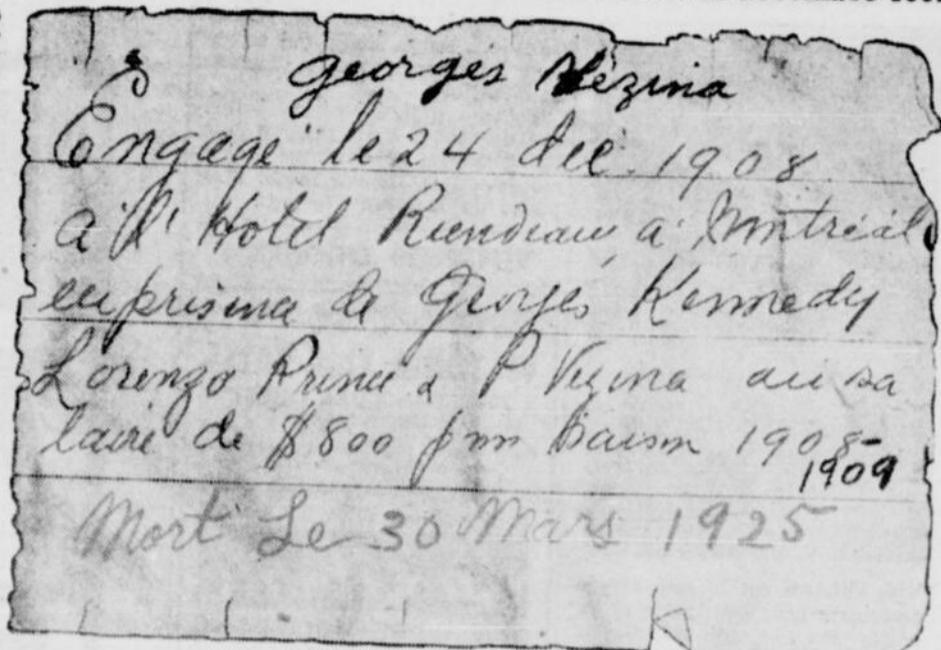 Georges Vézina
Engagé le 24 dec. 1908
a l' Hotel Riendeau, a Montréal
en prisence de Georges Kennedy
Lorenzo Prince & P Vezina au sa
laire de $800 par saison 1908-
1909
Mort Le 30 Mars 1925